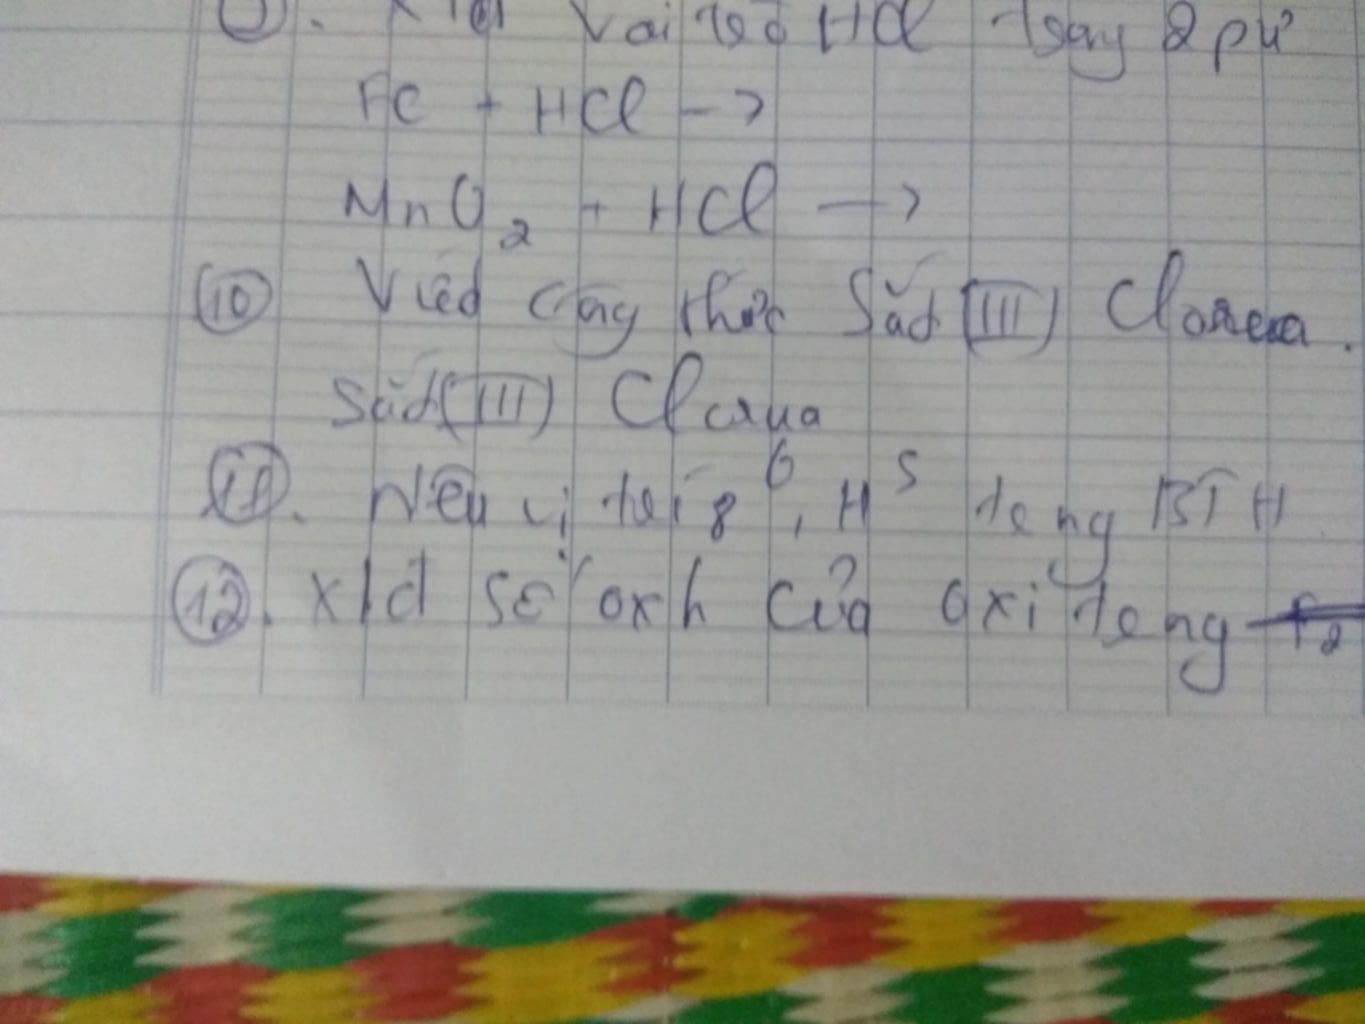 9. Xđ vai trò HCl trong 2 pứ
Fe + HCl →
MnO₂ + HCl →
10 Viết công thức Sắt (III) Clorua.
Sắt (III) Clorua
11. Nêu vị trí 8⁶, H⁵ trong BTH
12. xđ số oxh của oxi trong